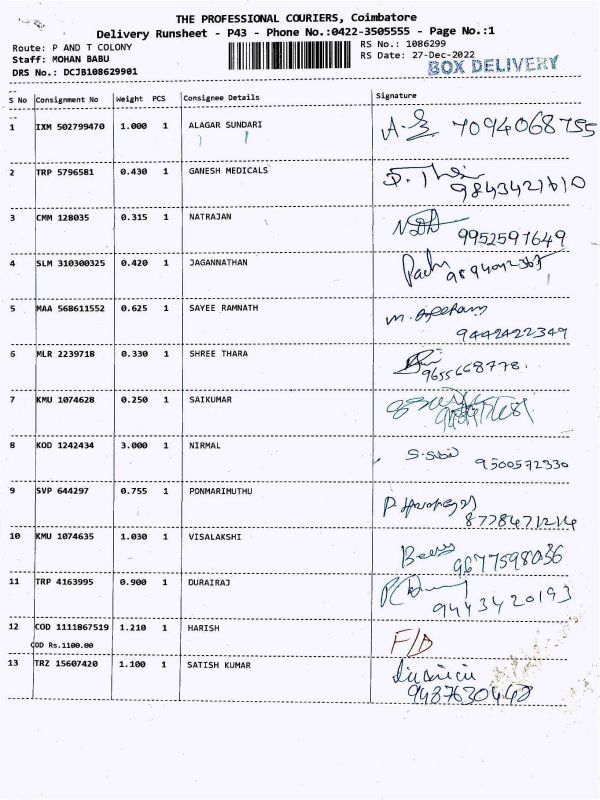 THE PROFESSIONAL COURIERS, Coimbatore
Delivery Runsheet - P43 - Phone No.:0422-3505555 - Page No.:1
Route: P AND T COLONY RS No.: 1086299
Staff: MOHAN BABU RS Date: 27-Dec-2022
DRS No.: DCJB108629901 BOX DELIVERY
S No Consignment No Weight PCS Consignee Details Signature
1 IXM 502799470 1.000 1 ALAGAR SUNDARI 7094068755
2 TRP 5796581 0.430 1 GANESH MEDICALS 9843421610
3 CMM 128035 0.315 1 NATRAJAN 9952597649
4 SLM 310300325 0.420 1 JAGANNATHAN
5 MAA 568611552 0.625 1 SAYEE RAMNATH 9442422349
6 MLR 2239718 0.330 1 SHREE THARA 9655668778.
7 KMU 1074628 0.250 1 SAIKUMAR
8 KOD 1242434 3.000 1 NIRMAL 9500572330
9 SVP 644297 0.755 1 PONMARIMUTHU 8778471214
10 KMU 1074635 1.030 1 VISALAKSHI 9677598036
11 TRP 4163995 0.900 1 DURAIRAJ 9443420193
12 COD 1111867519 1.210 1 HARISH F/D
COD Rs.1100.00
13 TRZ 15607420 1.100 1 SATISH KUMAR 9487630448